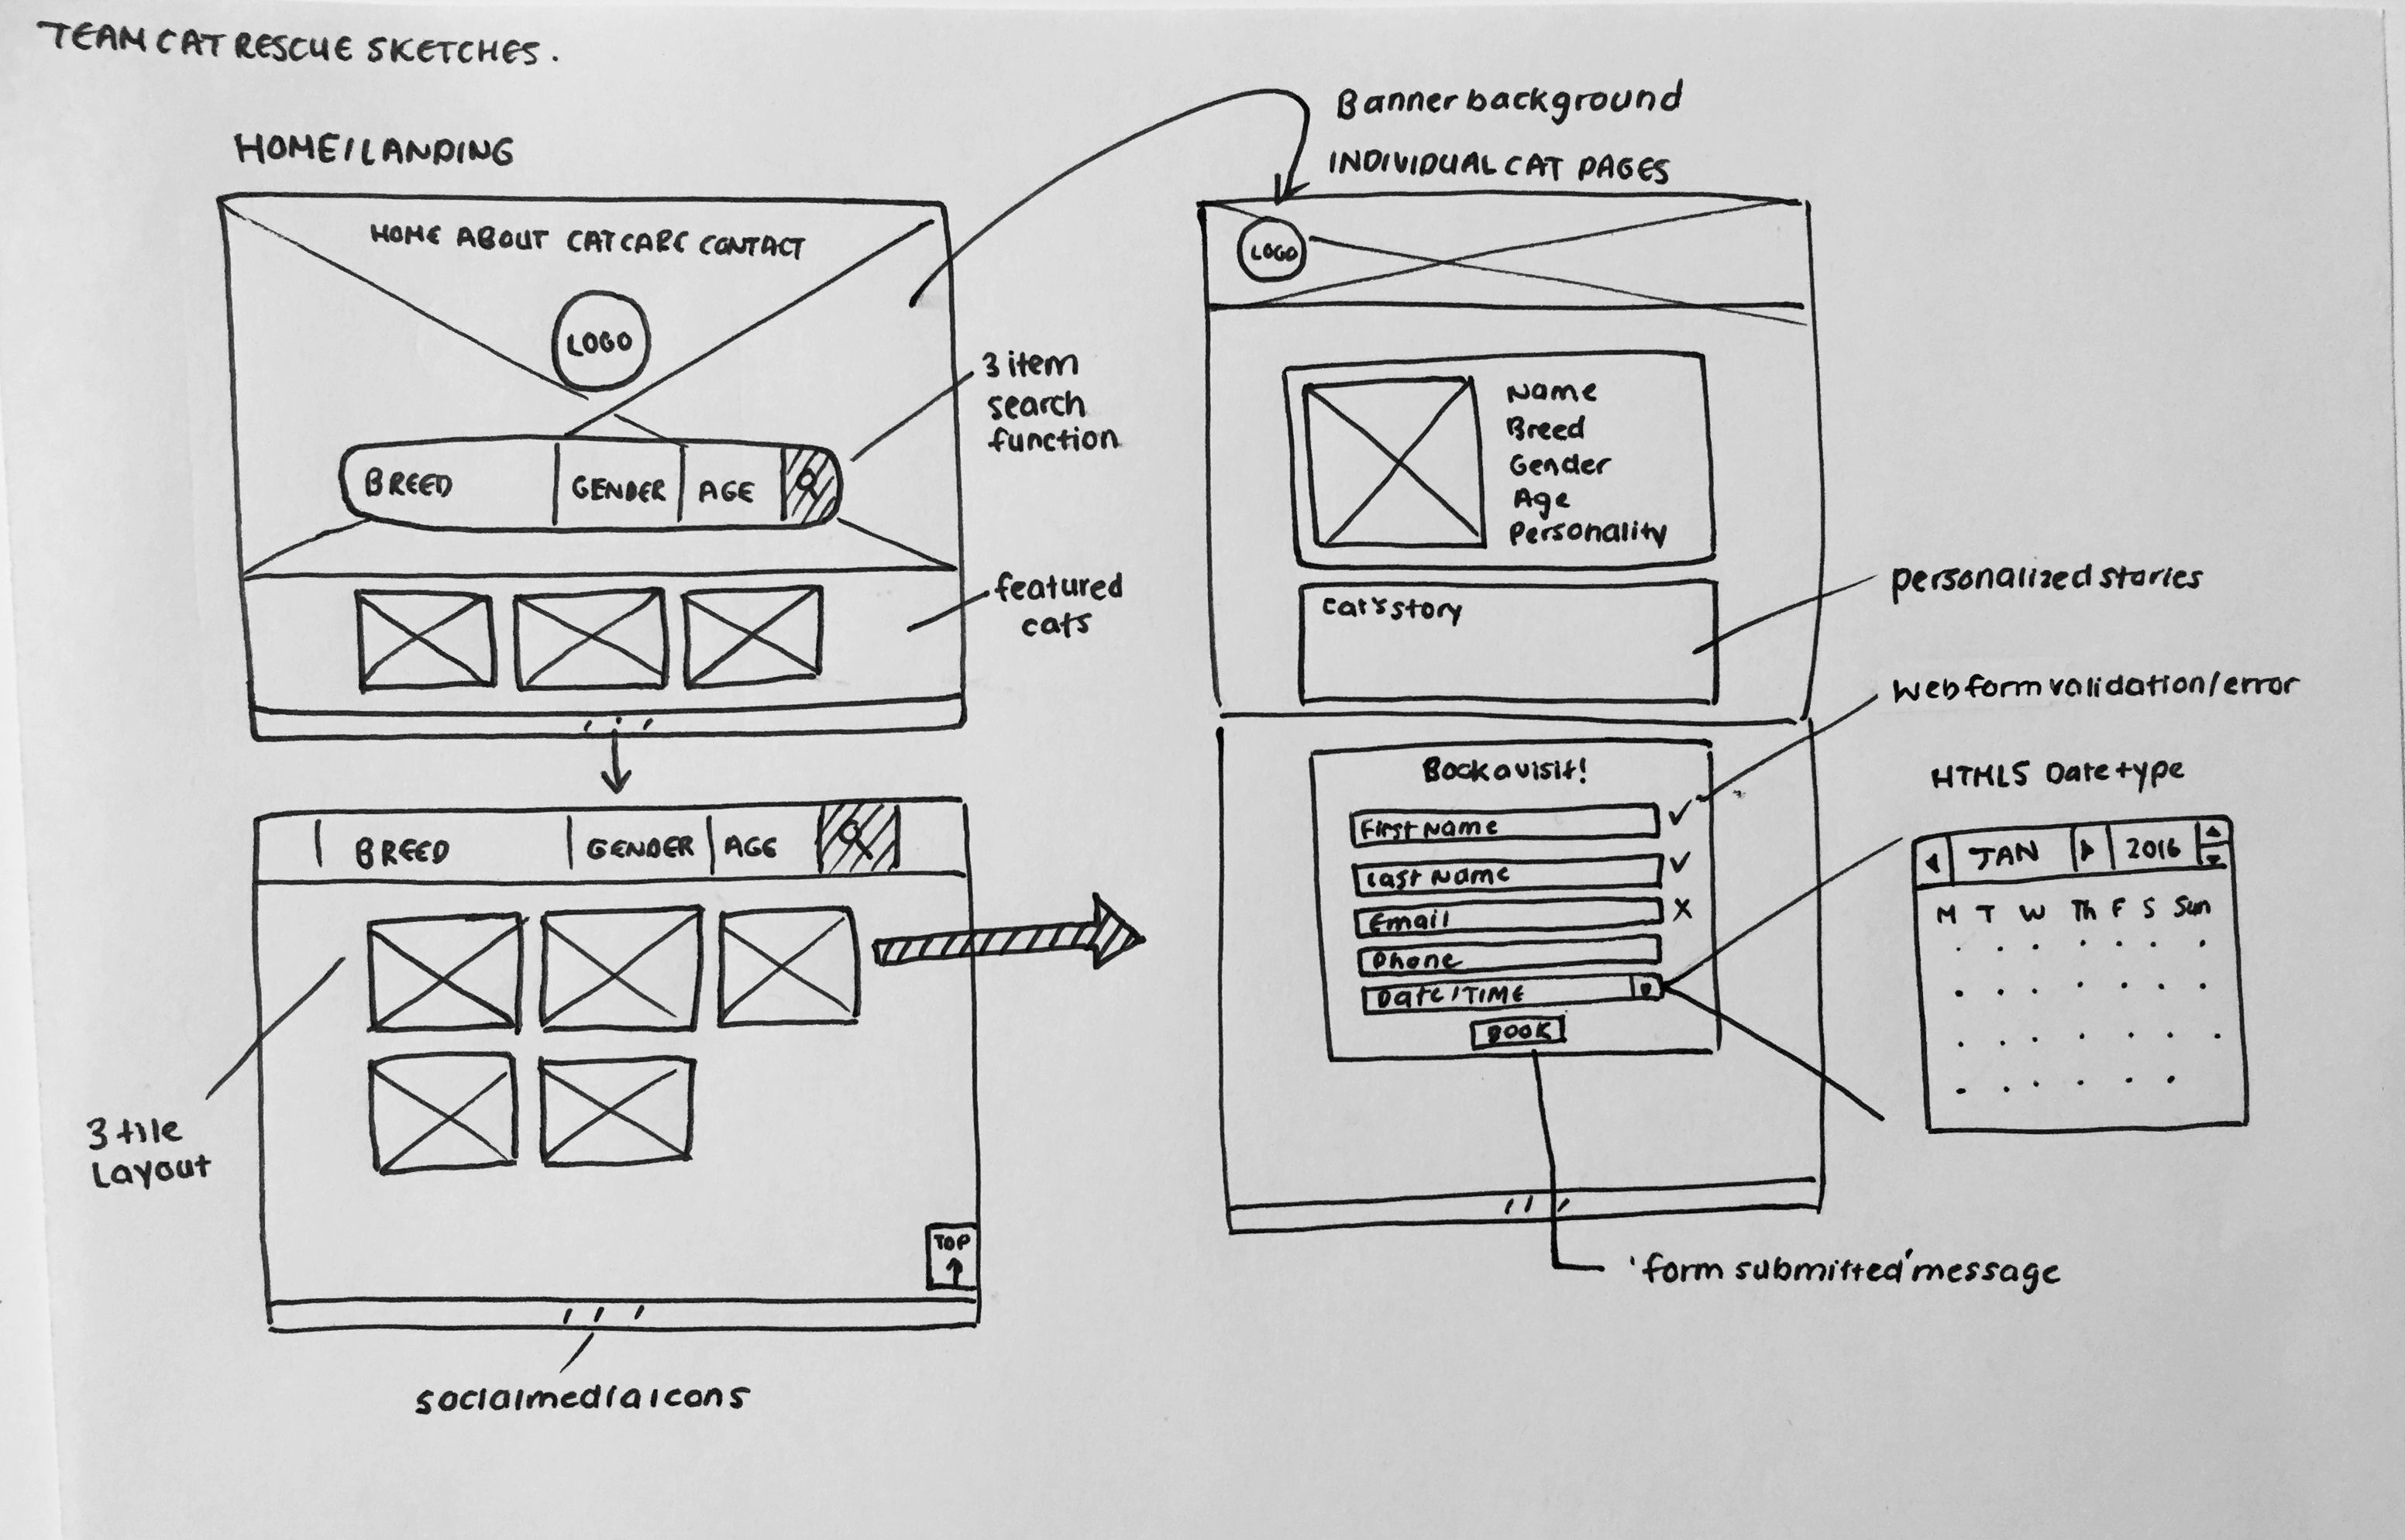 TEAM CAT RESCUE SKETCHES.
HOME/LANDING
HOME ABOUT CAT CARE CONTACT
LOGO
BREED GENDER AGE
3 item
search
function
featured
cats
BREED GENDER AGE
3 tile
Layout
TOP
social media icons
Banner background
INDIVIDUAL CAT PAGES
LOGO
Name
Breed
Gender
Age
Personality
Cat's story
personalized stories
Web form validation/error
Book a visit!
First Name
Last Name
Email
Phone
Date/TIME
BOOK
HTML5 Date type
JAN 2016
M T W Th F S Sun
'form submitted' message